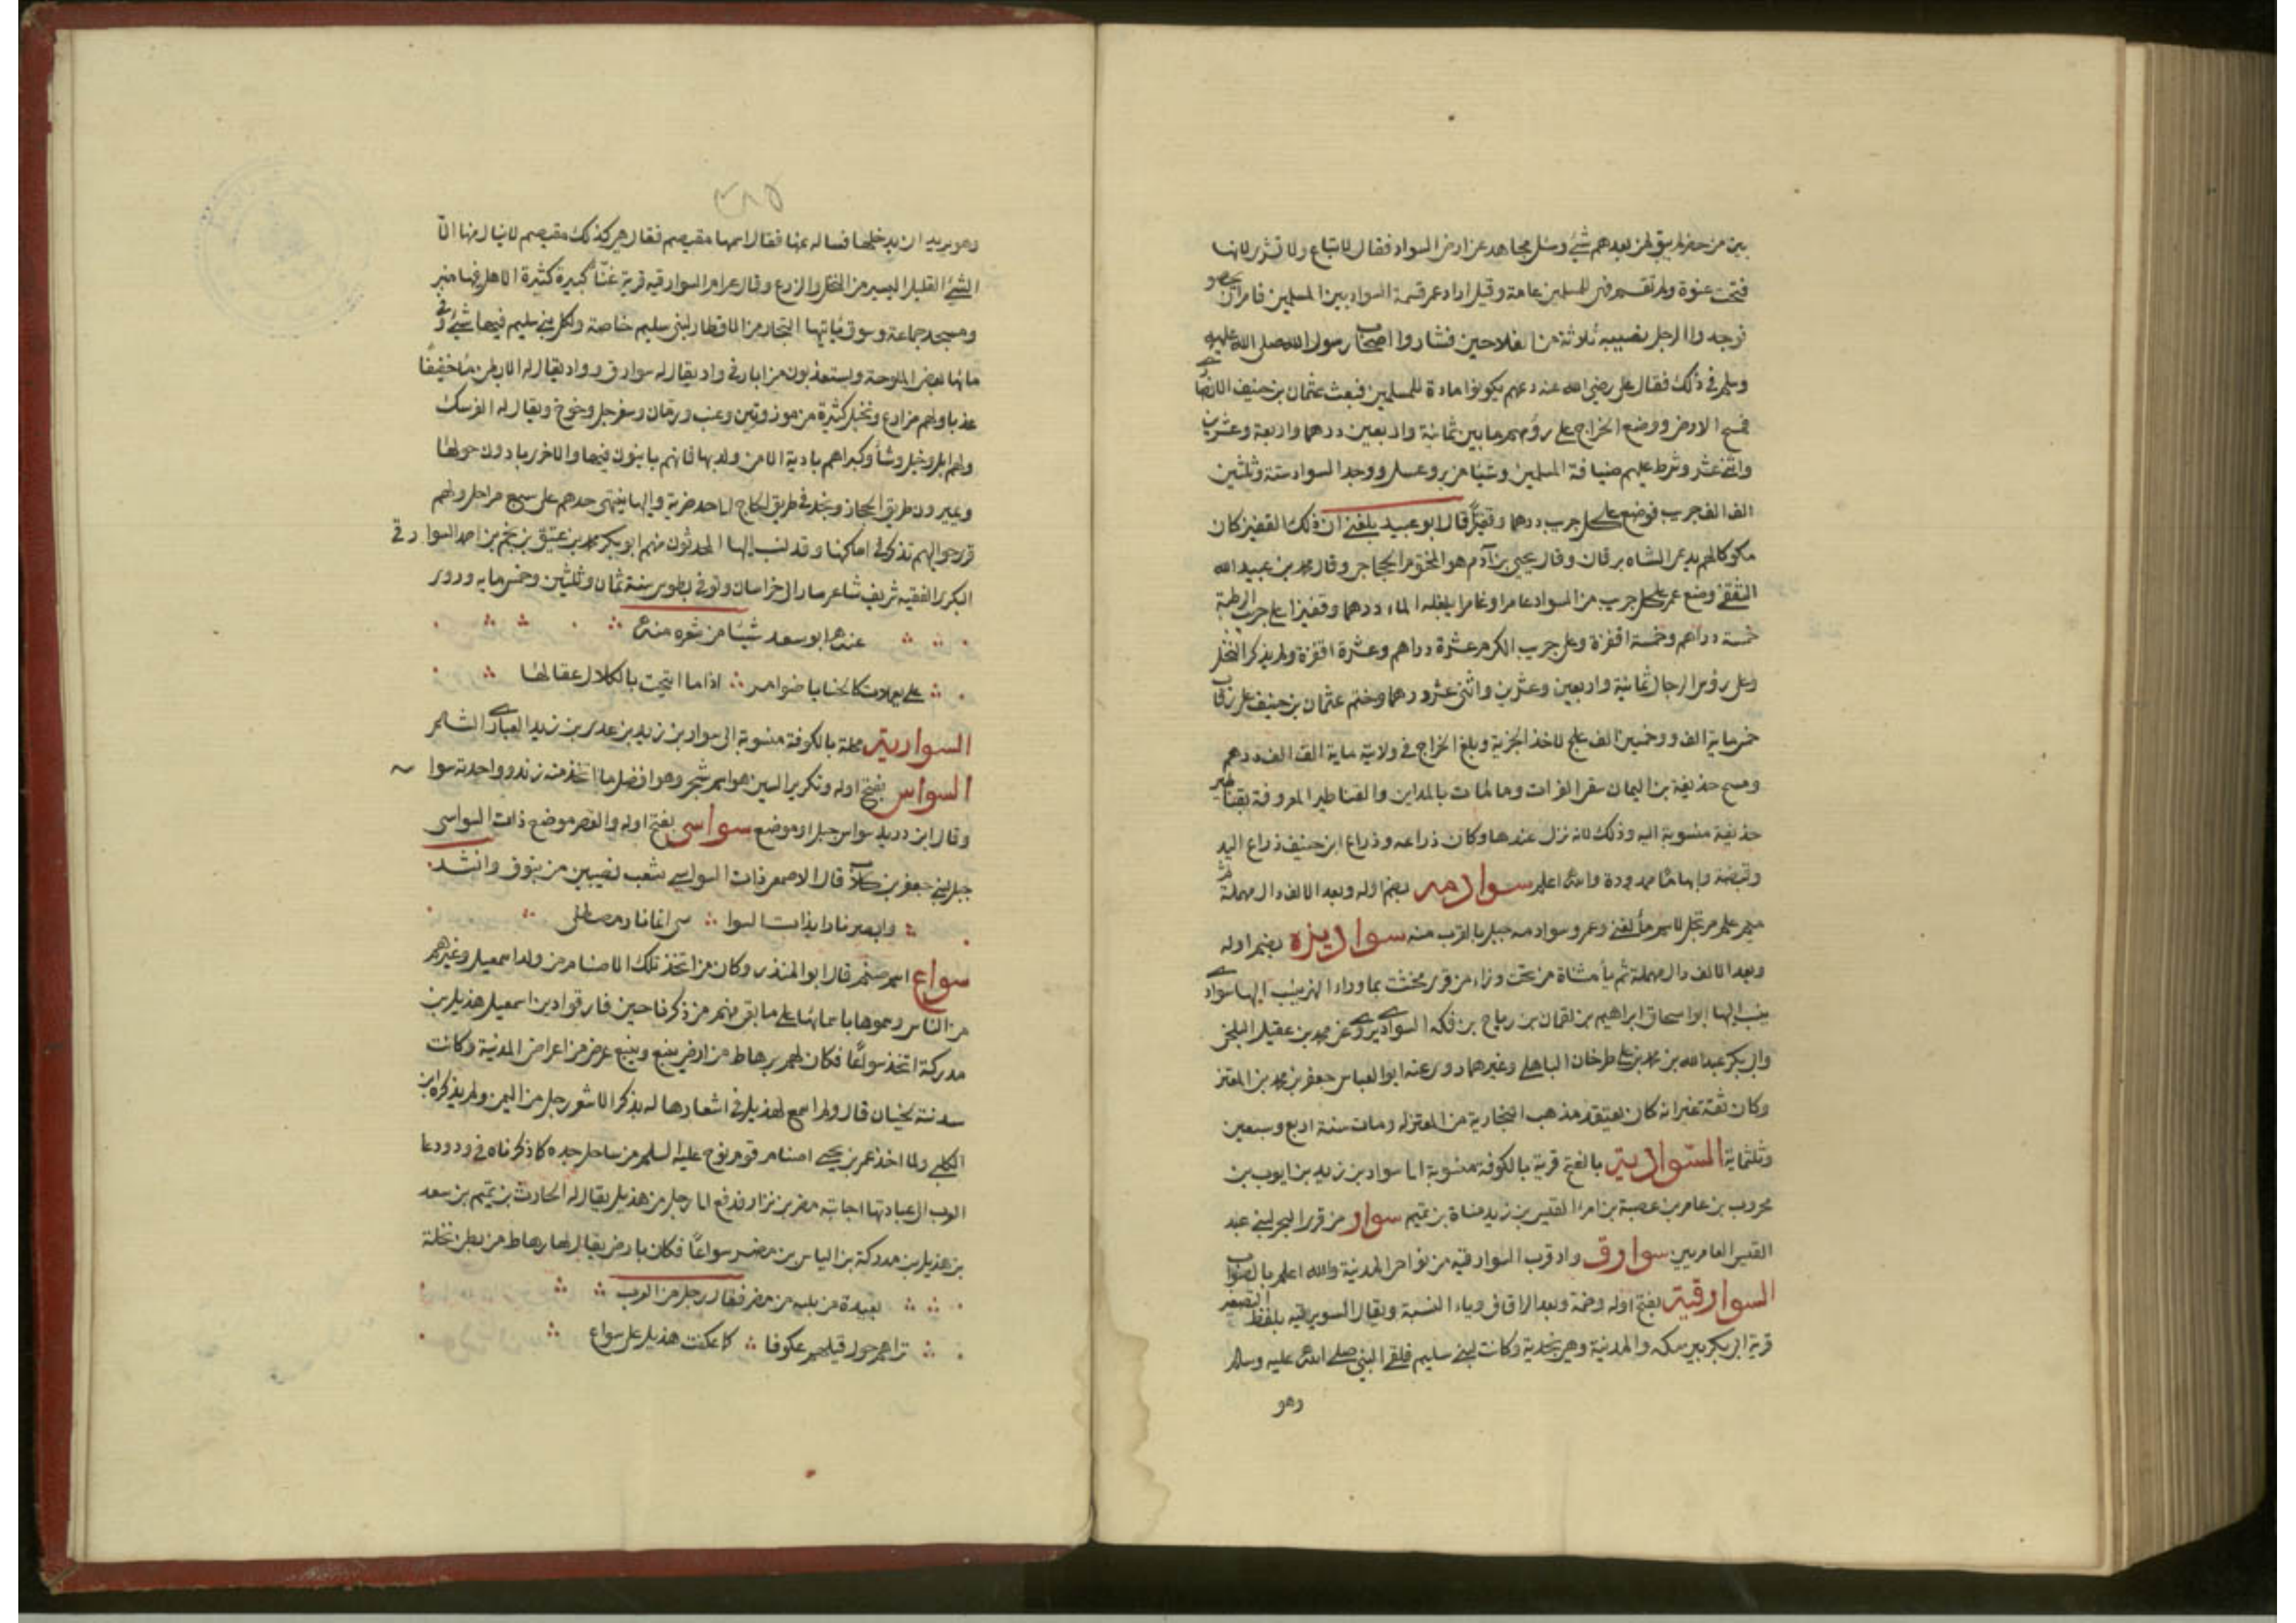 بين من حضر لم يبق لمن بعدهم شئ وسئل مجاهد عن ارض السواد فقال لا تباع ولا تشترى لانها
فتحت عنوة ولم تقسم فهى للمسلمين عامة وقيل اراد عمر قسمة السواد بين المسلمين فامر ان يحصوا
فوجدوا الرجل نصيبه ثلاثة من الفلاحين فشاروا اصحاب رسول الله صلى الله عليه
وسلم فى ذلك فقال على رضى الله عنه دعهم يكونوا مادة للمسلمين فبعث عثمان بن حنيف الانصارى
فمسح الارض ووضع الخراج على رؤسهم ما بين ثمانية واربعين درهما واربعة وعشرين
واثنى عشر وشرط عليهم ضيافة المسلمين وشيئا من بر وعسل ووجد السواد ستة وثلثين
الف الف جريب فوضع على كل جريب درهما وقفيزا قال ابو عبيد بلغنى ان ذلك القفيز كان
مكوكا لهم يدعى الشاه برقان وقال يحيى بن آدم هو المختوم الحجاجى وقال محمد بن عبيد الله
الثقفى وضع عمر على كل جريب من السواد عامرا وغامرا يبلغه الماء درهما وقفيزا على جريب الرطبة
خمسة دراهم وخمسة اقفزة وعلى جريب الكرم عشرة دراهم وعشرة اقفزة ولم يذكر النخل
وعلى رؤس الرجال ثمانية واربعين وعشرين واثنى عشر درهما وختم عثمان بن حنيف على رقاب
خمسماية الف وخمسين الف علج لاخذ الجزية وبلغ الخراج فى ولايته ماية الف الف درهم
ومسح حذيفة بن اليمان سقى الفرات ومات بالمداين والقناطير المعروفة بقناطير
حذيفة منسوبة اليه وذلك لانه نزل عندها وكان ذراعه وذراع ابن حنيف ذراع اليد
وقبضة وابهاما ممدودة والله اعلم سوادمه بضم اوله وبعد الالف دال مهملة ثم
ميم علم مرتجل لاسم ماء لغنى وعمرو سوادمه جبل بالقرب منه سواديزه بضم اوله
وبعد الالف دال مهملة ثم ياء مثناة من تحت وزاء من قرى نخشب بما وراء النهر ينسب اليها سوادى
ينسب اليها ابو اسحاق ابراهيم بن لقمان بن رباح بن فكه السواديزى عن محمد بن عقيل البلخى
وابى بكر عبد الله بن محمد بن على طرخان الباهلى وغيرهما روى عنه ابو العباس جعفر بن محمد بن المعتز
وكان ثقة غير انه كان يعتقد مذهب النجارية من المعتزله ومات سنة اربع وسبعين
وثلثماية السوادية بالفتح قرية بالكوفة منسوبة الى سواد بن زيد بن ايوب بن
محروب بن عامر بن عصبة بن امرا القيس بن زيد مناة بن تميم سوار من قرى البحر لبنى عبد
القيس العامريين سوارق واد قرب السوارقيه من نواحى المدينة والله اعلم بالصواب
السوارقية بفتح اوله وضمة وبعد الرا قاف وياء النسبة ويقال السويرقيه بلفظ التصغير
قرية ابى بكر بين مكه والمدينة وهى نجدية وكانت لبنى سليم فلقى النبى صلى الله عليه وسلم
وهو
٢٨٥
وهو يريد ان يدخلها فساله عنها فقال اسمها مقيصم فقال هى كذلك مقيصم لا ينال منها الا
الشئ القليل اليسير من النخل والزرع وقال عرام السوارقيه قرية غناء كبيرة كثيرة الاهل فيها منبر
ومسجد جماعة وسوق ياتيها التجار من الاقطار لبنى سليم خاصة ولكل بنى سليم فيها شئ وفى
مائها بعض الملوحة ويستعذبون من ابار فى واد يقال له سوارق وواد يقال له الابطن ماء خفيفا
عذبا ولهم مزارع ونخيل كثيرة من موز وتين وعنب ورمان وسفرجل وخوخ ويقال له الفرسك
ولهم ابل وخيل وشاء وكبراهم بادية الا من ولد بها فانهم يابنون فيها والاخر بادون حولها
ويميرون طريق الحجاز ونجد فى طريق الحاج الى حد ضرية واليها ينتهى حدهم على سبع مراحل ولهم
قرى حواليهم تذكر فى اماكنها وقد نسب اليها المحدثون منهم ابو بكر محمد بن عتيق بن نجم بن احمد السوارقى
البكرى الفقيه شريف شاعر سار الى خراسان وتوفى بطوس سنة ثمان وثلثين وخمسمايه وروى
عنه ابو سعد شيئا من شعره منه
على يعملات كالحنايا ضوامر ∴ اذا ما انتحت بالكلال عقالها
السوارية محلة بالكوفة منسوبة الى سوار بن زيد بن عدى بن زيد العبادى الشاعر
السواس بفتح اوله وتكرير السين هو اسم شجر وهو افضل ما اتخذ منه زند وواحدته سوا
وقال ابن دريد سواس جبل او موضع سواسى بفتح اوله والقصر موضع ذات السواسى
جبل لبنى جعفر بن كلاب قال الاصمعى ذات السواسى شعب نصيبين من ينوف وانشد
وابصر نارا بذات السوا ∴
سواع اسم صنم قال ابو المنذر وكان من اتخذ تلك الاصنام من ولد اسمعيل وغيرهم
من الناس وسموها باسمائها على ما بقى منهم من ذكرنا حين فارقوا دين اسمعيل هذيل بن
مدركة اتخذ سواعًا فكان لهم برهاط من ارض ينبع وينبع عرض من اعراض المدنية وكانت
سدنته لحيان قال ولم اسمع لهذيل فى اشعارها له بذكر الا شعر رجل من اليمن ولم يذكره ابن
الكلبى ولما اخذ عمر بن يحيى اصنام قوم نوح عليه السلم من ساحل جده كما ذكرناه فى ود ودعا
العرب الى عبادتها اجابته مضر بن نزار فدفع الى رجل من هذيل يقال له الحارث بن تميم بن سعد
بن هذيل بن مدركة بن الياس بن مضر سواعًا فكان بارض يقال لها رهاط من بطن نخلة
بعبده من يليه من مضر فقال رجل من العرب
تراهم حول قيلهم عكوفا ∴ كما عكفت هذيل على سواع